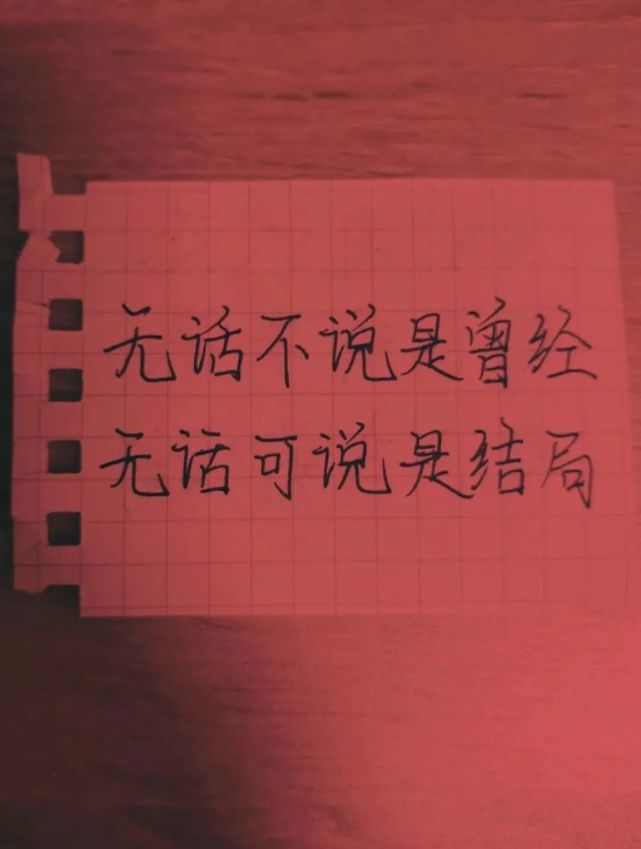 无话不说是曾经
无话可说是结局